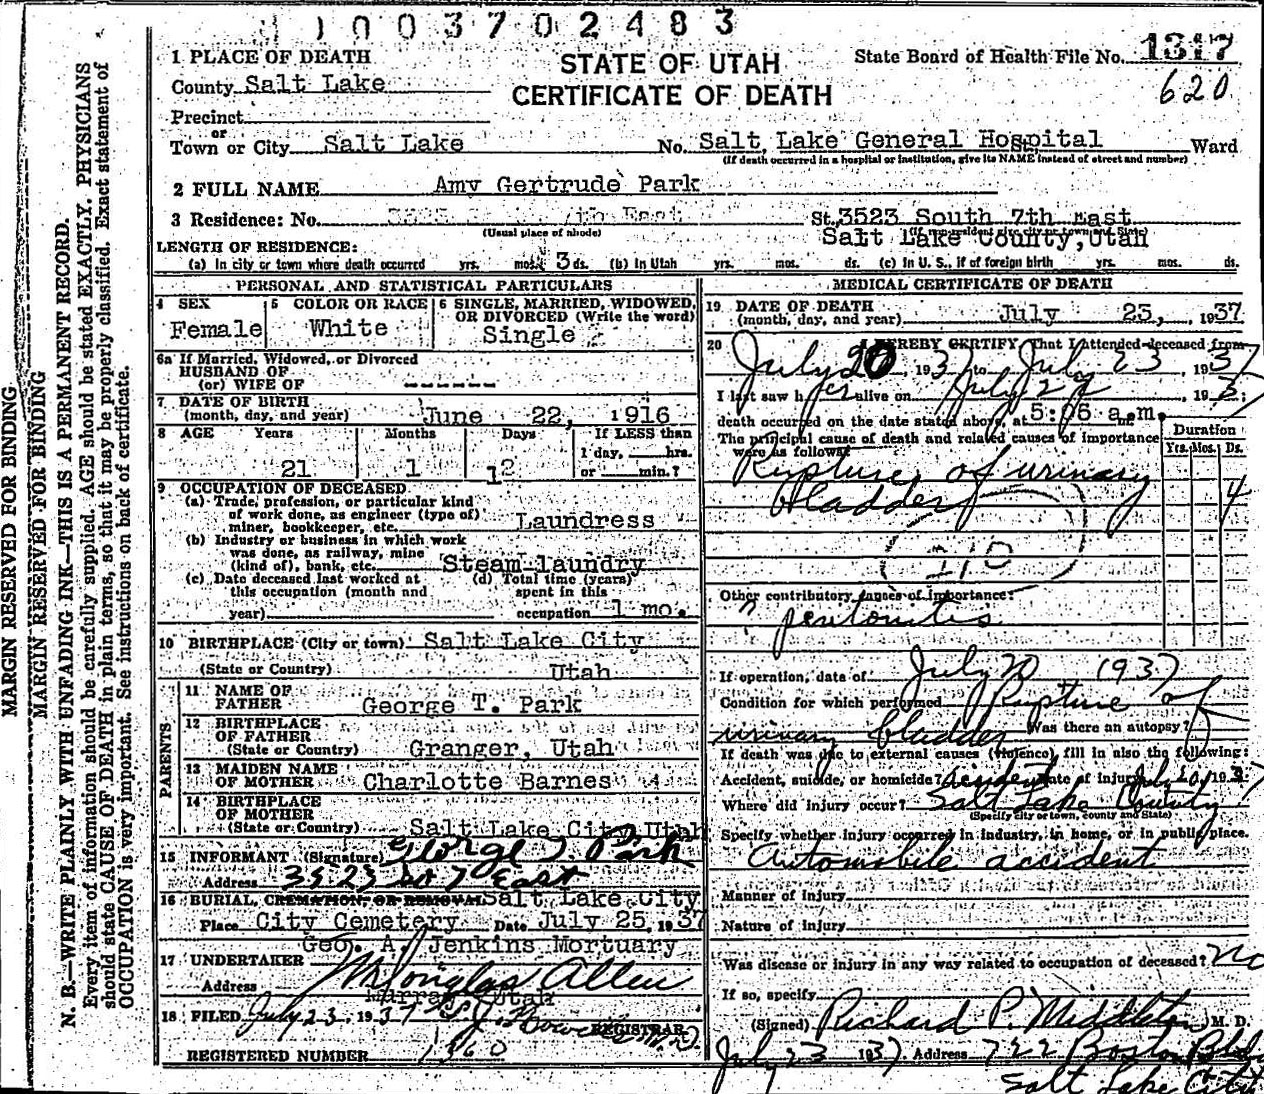 1003702483
MARGIN RESERVED FOR BINDING
MARGIN RESERVED FOR BINDING
N. B.—WRITE PLAINLY WITH UNFADING INK—THIS IS A PERMANENT RECORD.
Every item of information should be carefully supplied. AGE should be stated EXACTLY. PHYSICIANS
should state CAUSE OF DEATH in plain terms, so that it may be properly classified. Exact statement of
OCCUPATION is very important. See instructions on back of certificate.
STATE OF UTAH
CERTIFICATE OF DEATH
State Board of Health File No.
620
1 PLACE OF DEATH
County Salt Lake
Precinct
or
Town or City Salt Lake No. Salt Lake General Hospital St. Ward
(If death occurred in a hospital or institution, give its NAME instead of street and number)
2 FULL NAME Amy Gertrude Park
3 Residence: No. St. 3523 South 7th East
(Usual place of abode) (If non-resident give city or town and State)
Salt Lake County, Utah
LENGTH OF RESIDENCE:
(a) In city or town where death occurred yrs. mos. 3 ds. (b) In Utah yrs. mos. ds. (c) In U. S., if of foreign birth yrs. mos. ds.
PERSONAL AND STATISTICAL PARTICULARS
4 SEX
Female
5 COLOR OR RACE
White
6 SINGLE, MARRIED, WIDOWED,
OR DIVORCED (Write the word)
Single
6a If Married, Widowed, or Divorced
HUSBAND OF
(or) WIFE OF ------
7 DATE OF BIRTH
(month, day, and year) June 22, 1916
8 AGE Years Months Days If LESS than
1 day, hrs.
or min.?
21 1
9 OCCUPATION OF DECEASED
(a) Trade, profession, or particular kind
of work done, as engineer (type of)
miner, bookkeeper, etc. Laundress
(b) Industry or business in which work
was done, as railway, mine
(kind of), bank, etc. Steam laundry
(c) Date deceased last worked at
this occupation (month and
year)
(d) Total time (years)
spent in this
occupation 1 mo.
10 BIRTHPLACE (City or town) Salt Lake City
(State or Country) Utah
PARENTS
11 NAME OF
FATHER George T. Park
12 BIRTHPLACE
OF FATHER
(State or Country) Granger, Utah
13 MAIDEN NAME
OF MOTHER Charlotte Barnes
14 BIRTHPLACE
OF MOTHER
(State or Country) Salt Lake City Utah
15 INFORMANT (Signature) George T. Park
Address 3523 So 7 East
16 BURIAL, CREMATION, OR REMOVAL Salt Lake City
Place City Cemetery Date July 25, 1937
Geo. A. Jenkins Mortuary
17 UNDERTAKER M Douglas Allen
Address Murray Utah
18 FILED July 23, 1937
REGISTRAR
REGISTERED NUMBER 1360
MEDICAL CERTIFICATE OF DEATH
19 DATE OF DEATH
(month, day, and year) July 23, 1937
20 I HEREBY CERTIFY, That I attended deceased from
July 20, 1937 to July 23, 1937
I last saw her alive on July 1937;
death occurred on the date stated above, at 5:05 a.m. m.
The principal cause of death and related causes of importance
were as follows:
Duration
Yrs. Mos. Ds.
Rupture of urinary
bladder 4
Other contributory causes of importance:
? peritonitis
If operation, date of July 20 1937
Condition for which performed Rupture of
urinary bladder Was there an autopsy?
If death was due to external causes (violence), fill in also the following:
Accident, suicide, or homicide? Accident Date of injury July 20, 1937
Where did injury occur? Salt Lake County
(Specify city or town, county and State)
Specify whether injury occurred in industry, in home, or in public place.
Automobile accident
Manner of injury
Nature of injury
Was disease or injury in any way related to occupation of deceased? No
If so, specify
(Signed) Richard P. Middleton M. D.
July 23 1937. Address 722 Boston Bldg
Salt Lake City